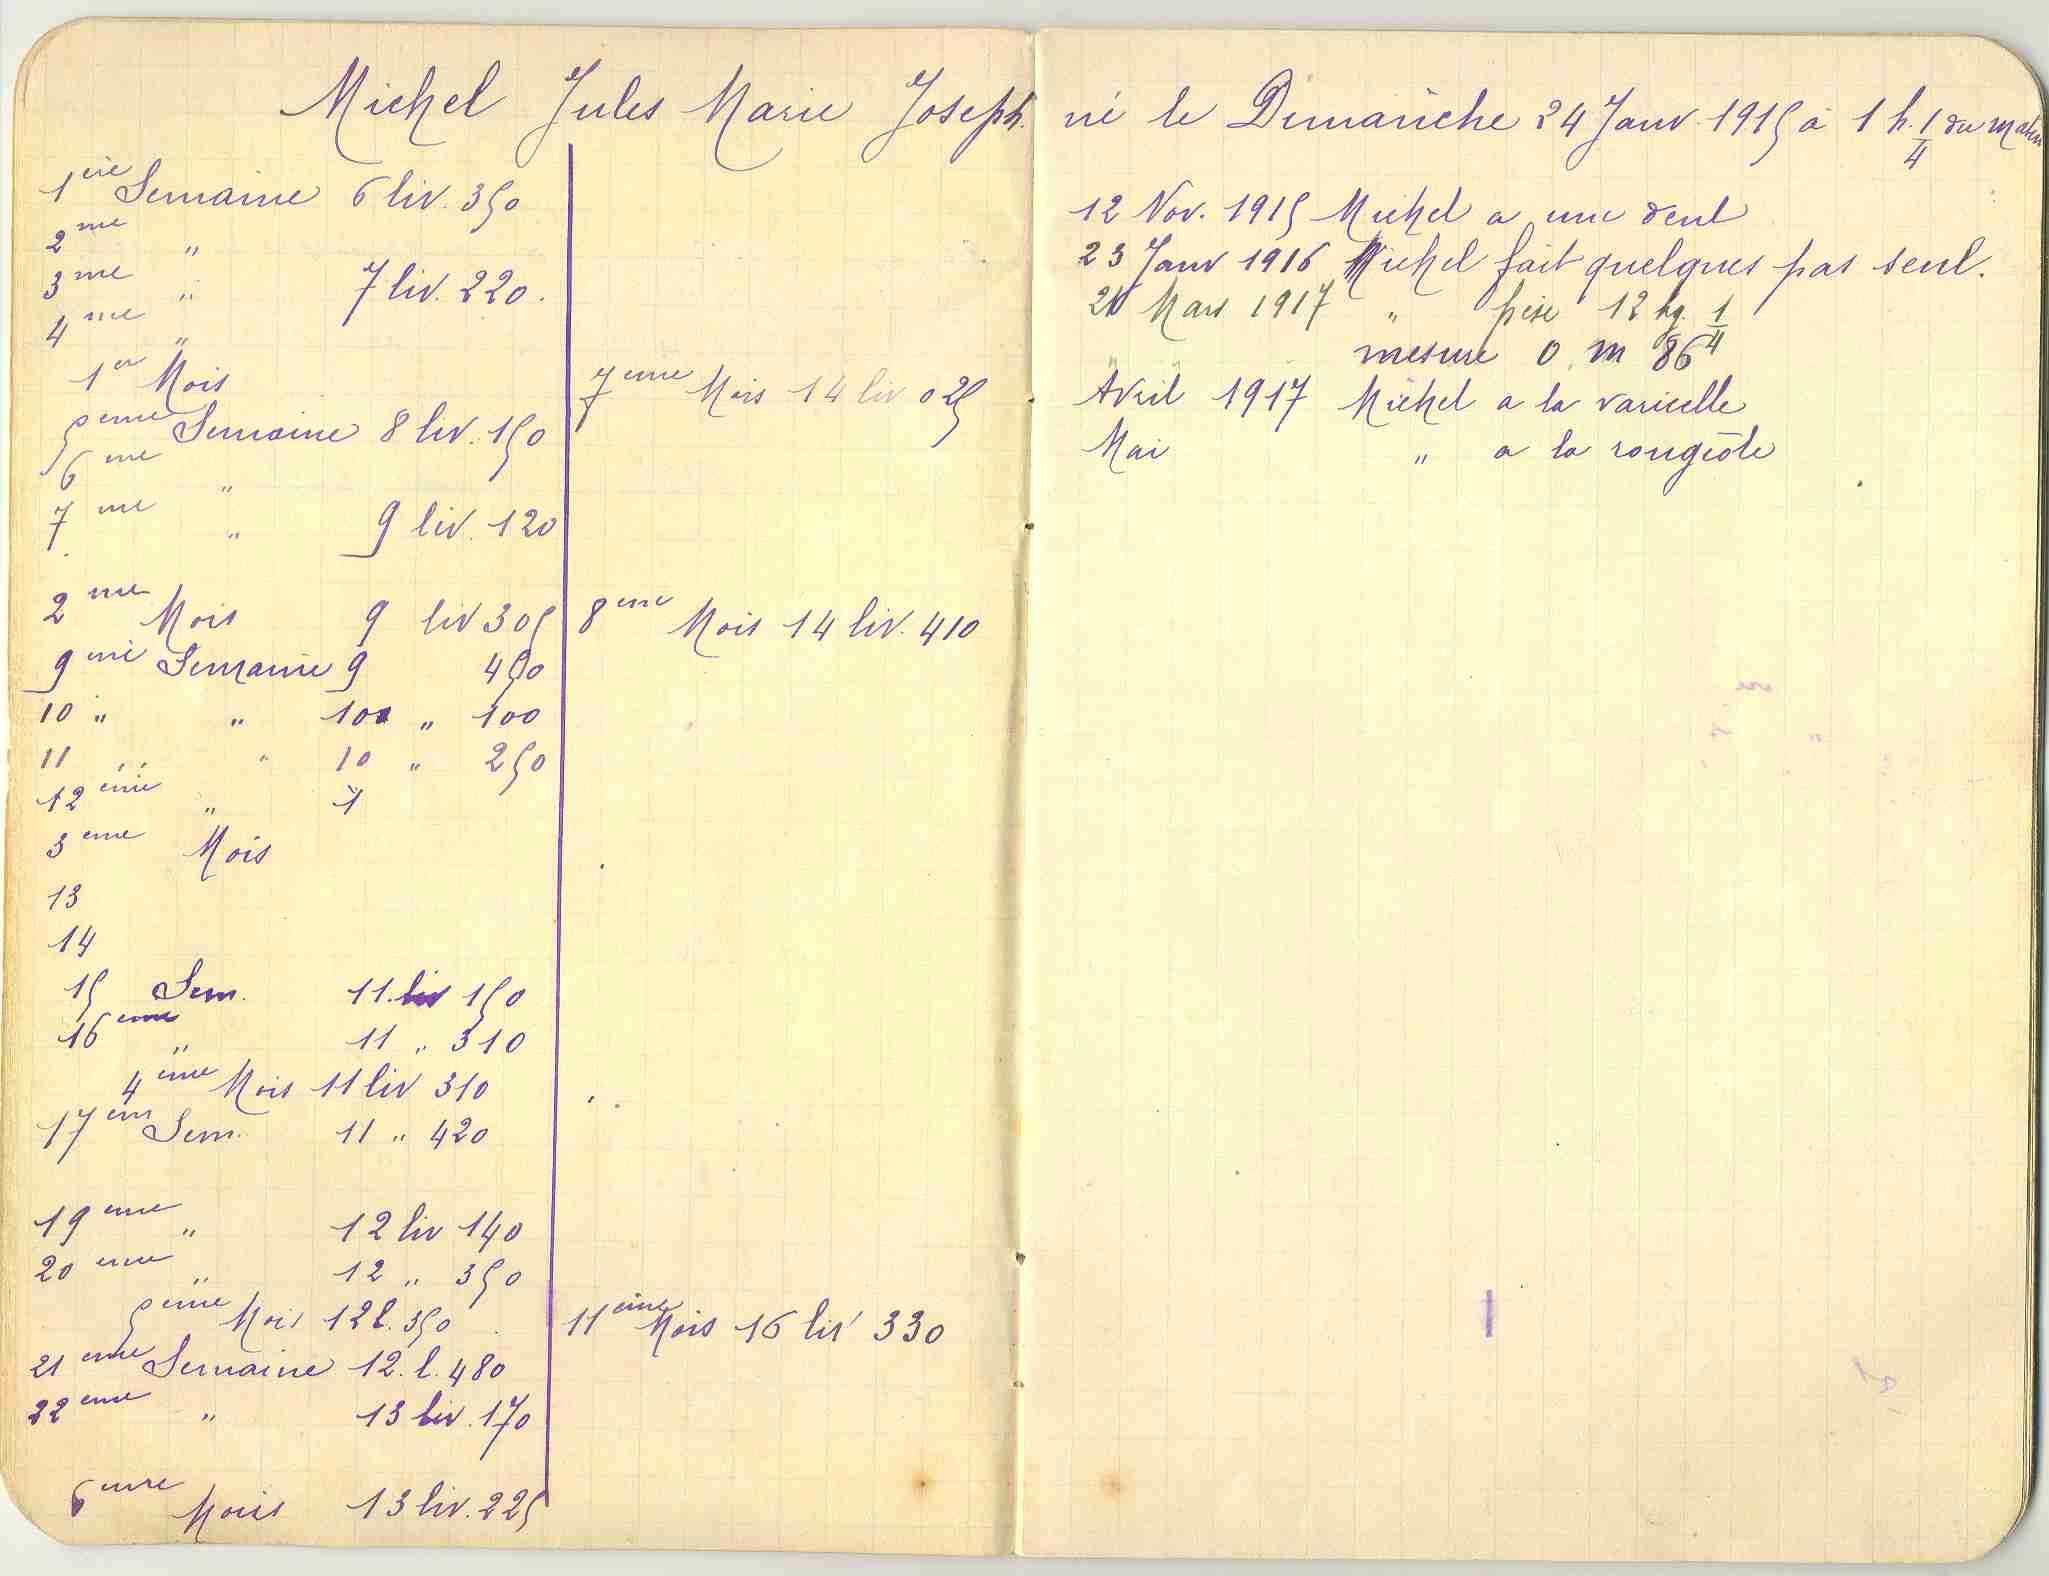 Michel Jules Marie Joseph.
1ère Semaine 6 liv. 350
2me "
3me " 7 liv. 220.
4me "
1er Mois
5eme Semaine 8 liv. 150
6me "
7me " 9 liv. 120
2me Mois 9 liv 305
9me Semaine 9 450
10 " " 10 " 100
11 " " 10 " 250
12eme " 1
3eme Mois
13
14
15 Sem. 11. liv 150
16eme " 11 " 310
4eme Mois 11 liv 310
17em Sem. 11 " 420
19eme " 12 liv 140
20eme " 12 " 350
5eme Mois 12 l. 350
21eme Semaine 12. l. 480
22eme " 13 liv. 170
6eme Mois 13 liv. 225
7eme Mois 14 liv 025
8eme Mois 14 liv. 410
11eme Mois 16 liv 330
né le Dimanche 24 Janv. 1915 à 1 h. 1/4 du matin
12 Nov. 1915 Michel a une dent
23 Janv 1916 Michel fait quelques pas seul.
Mars 1917 " pèse 12 kg. 1/4
mesure 0 m 86
Avril 1917 Michel a la varicelle
Mai " a la rougeole